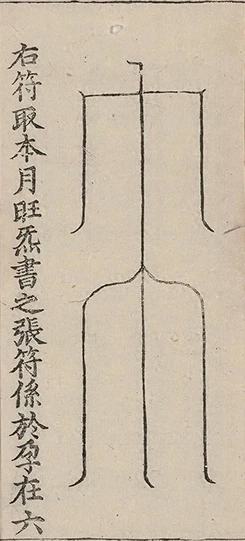 右符取本月旺炁書之張符係於孕在六